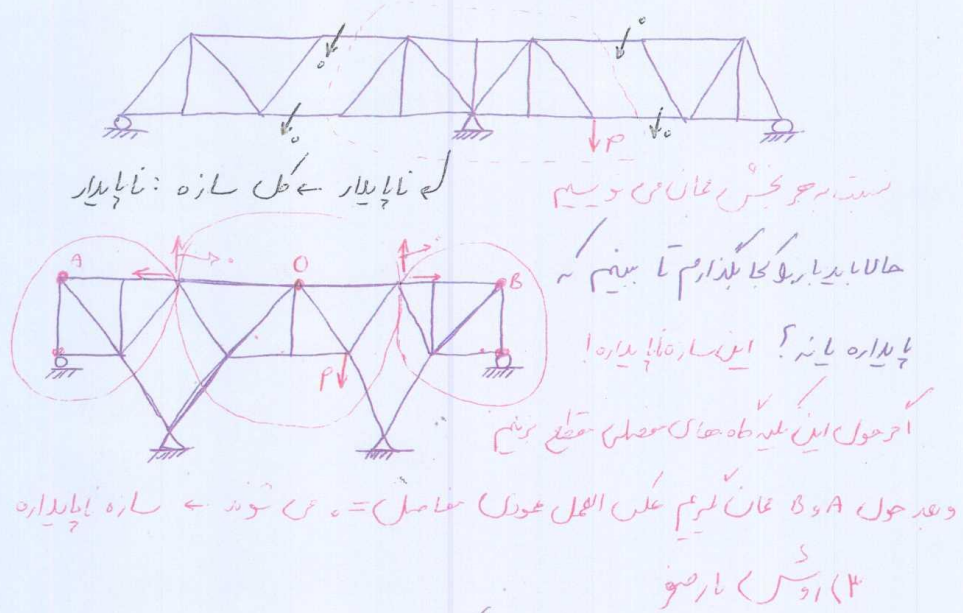 P
↳ ناپایدار ← کل سازه : ناپایدار
نسبت به هر بخش ممان می نویسیم
حالا باید بار رو کجا بگذارم تا ببینم که
A O B
پایداره یا نه؟ این سازه ناپایداره!
P
اگر حول این تکیه گاه های مفصلی مقطع بزنیم
و بعد حول A و B ممان گیرم عکس العمل عمودی مفاصل = ۰ می شوند ← سازه ناپایداره
۳) روش بار صفر